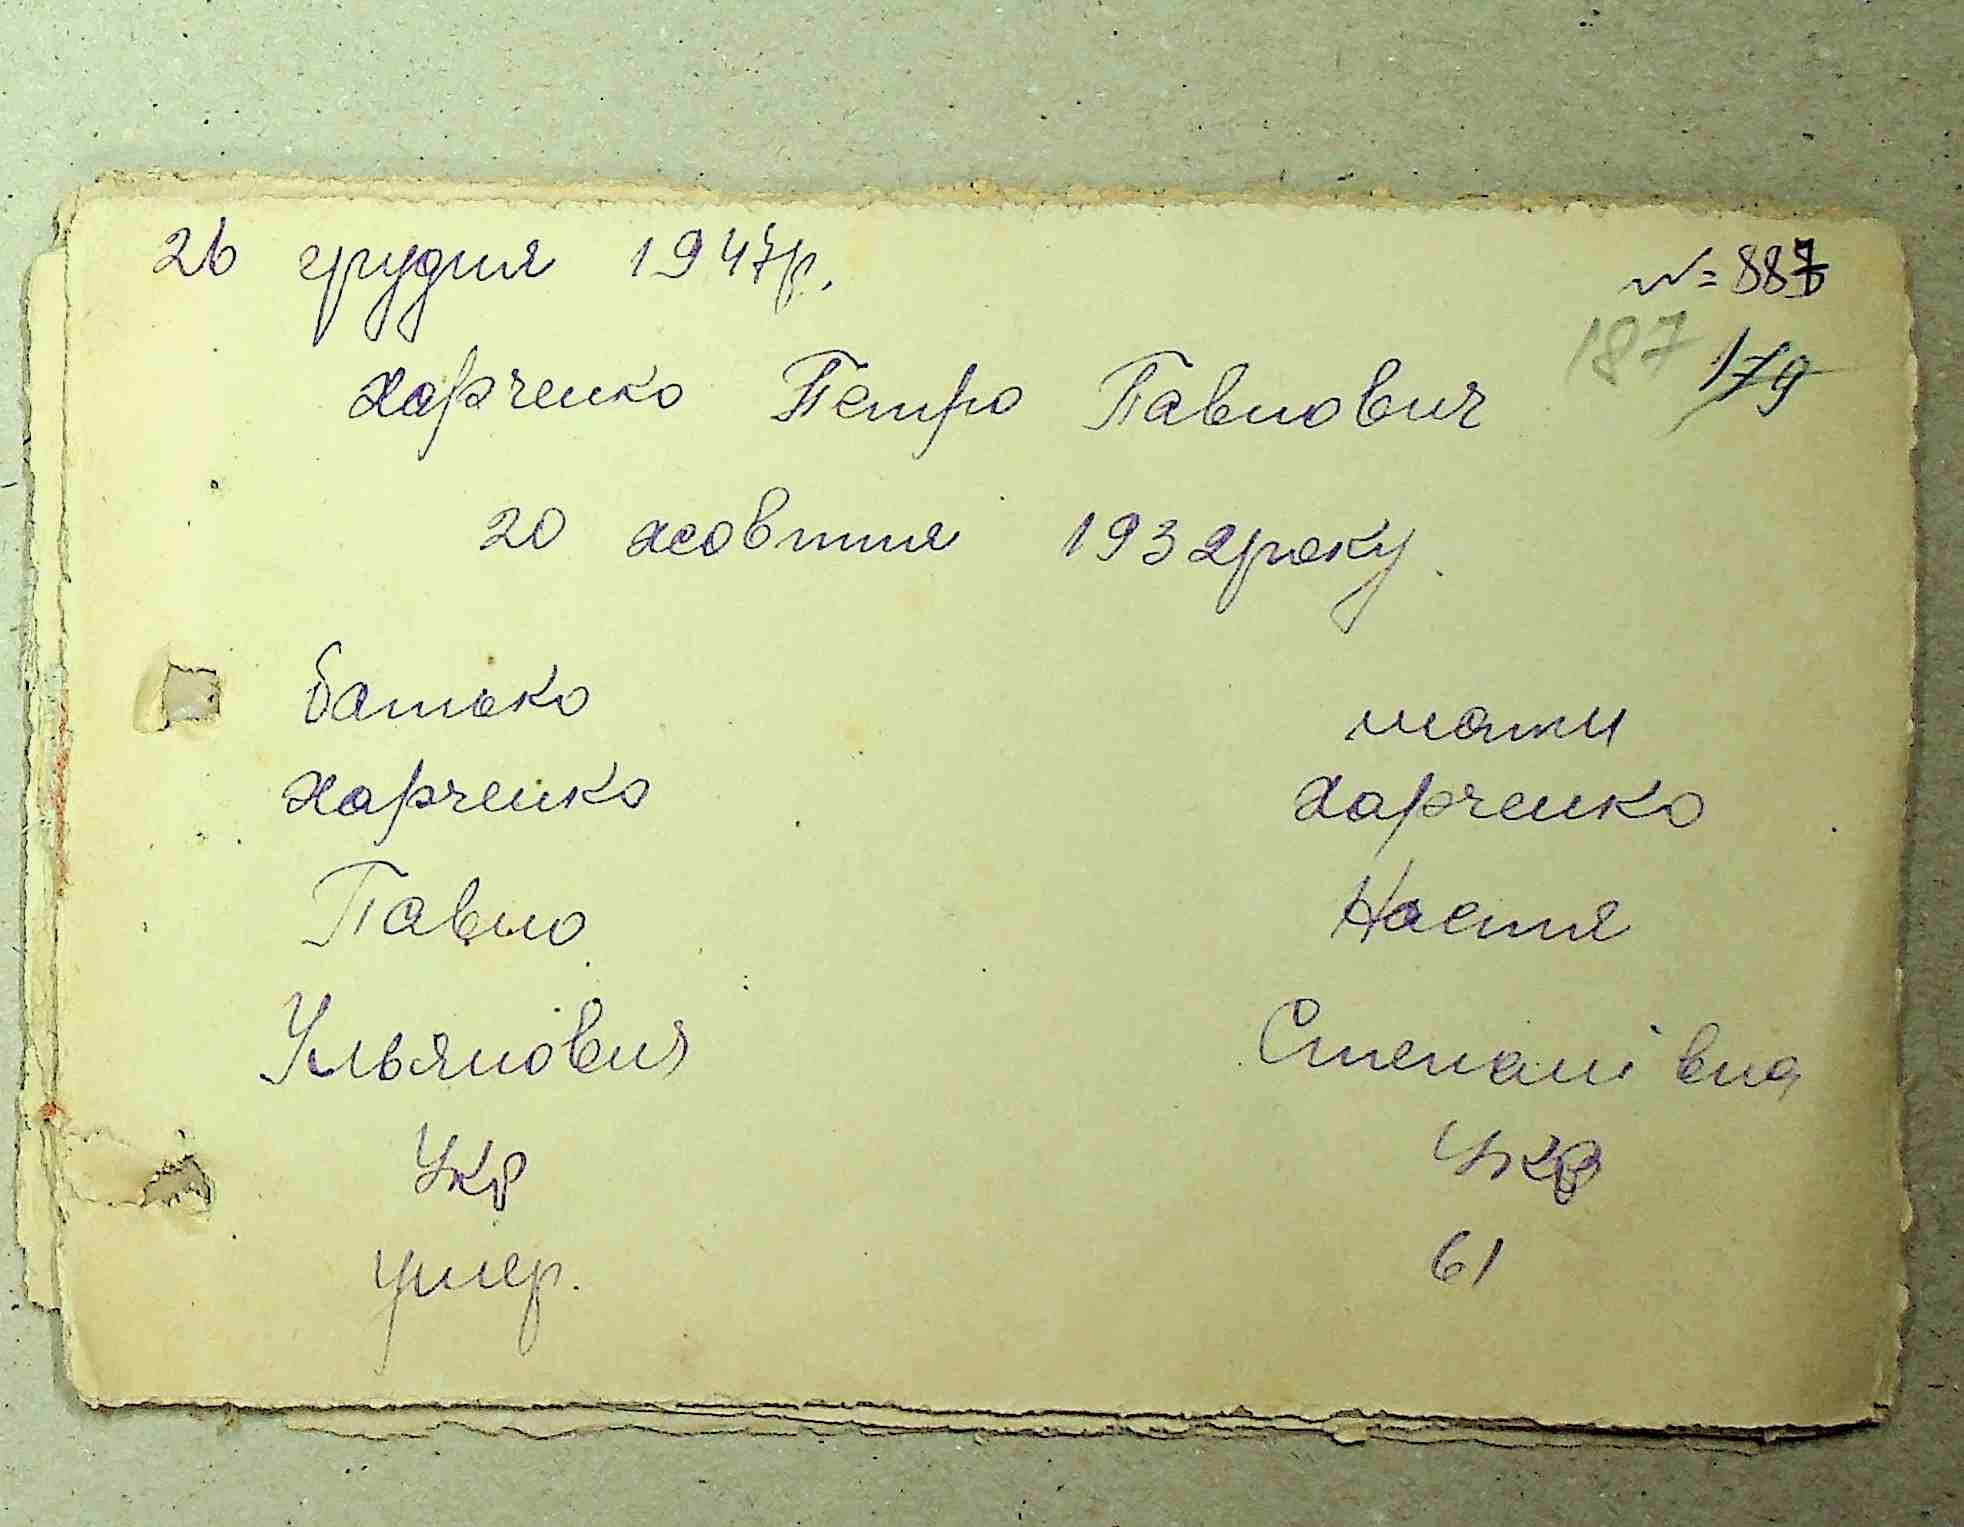 26 грудня 1947р.
№=887
187 179
Харченко Петро Павлович
20 жовтня 1932року.
батько мати
Харченко Харченко
Павло Настя
Ульянович Степанівна
Укр Укр
умер. 61